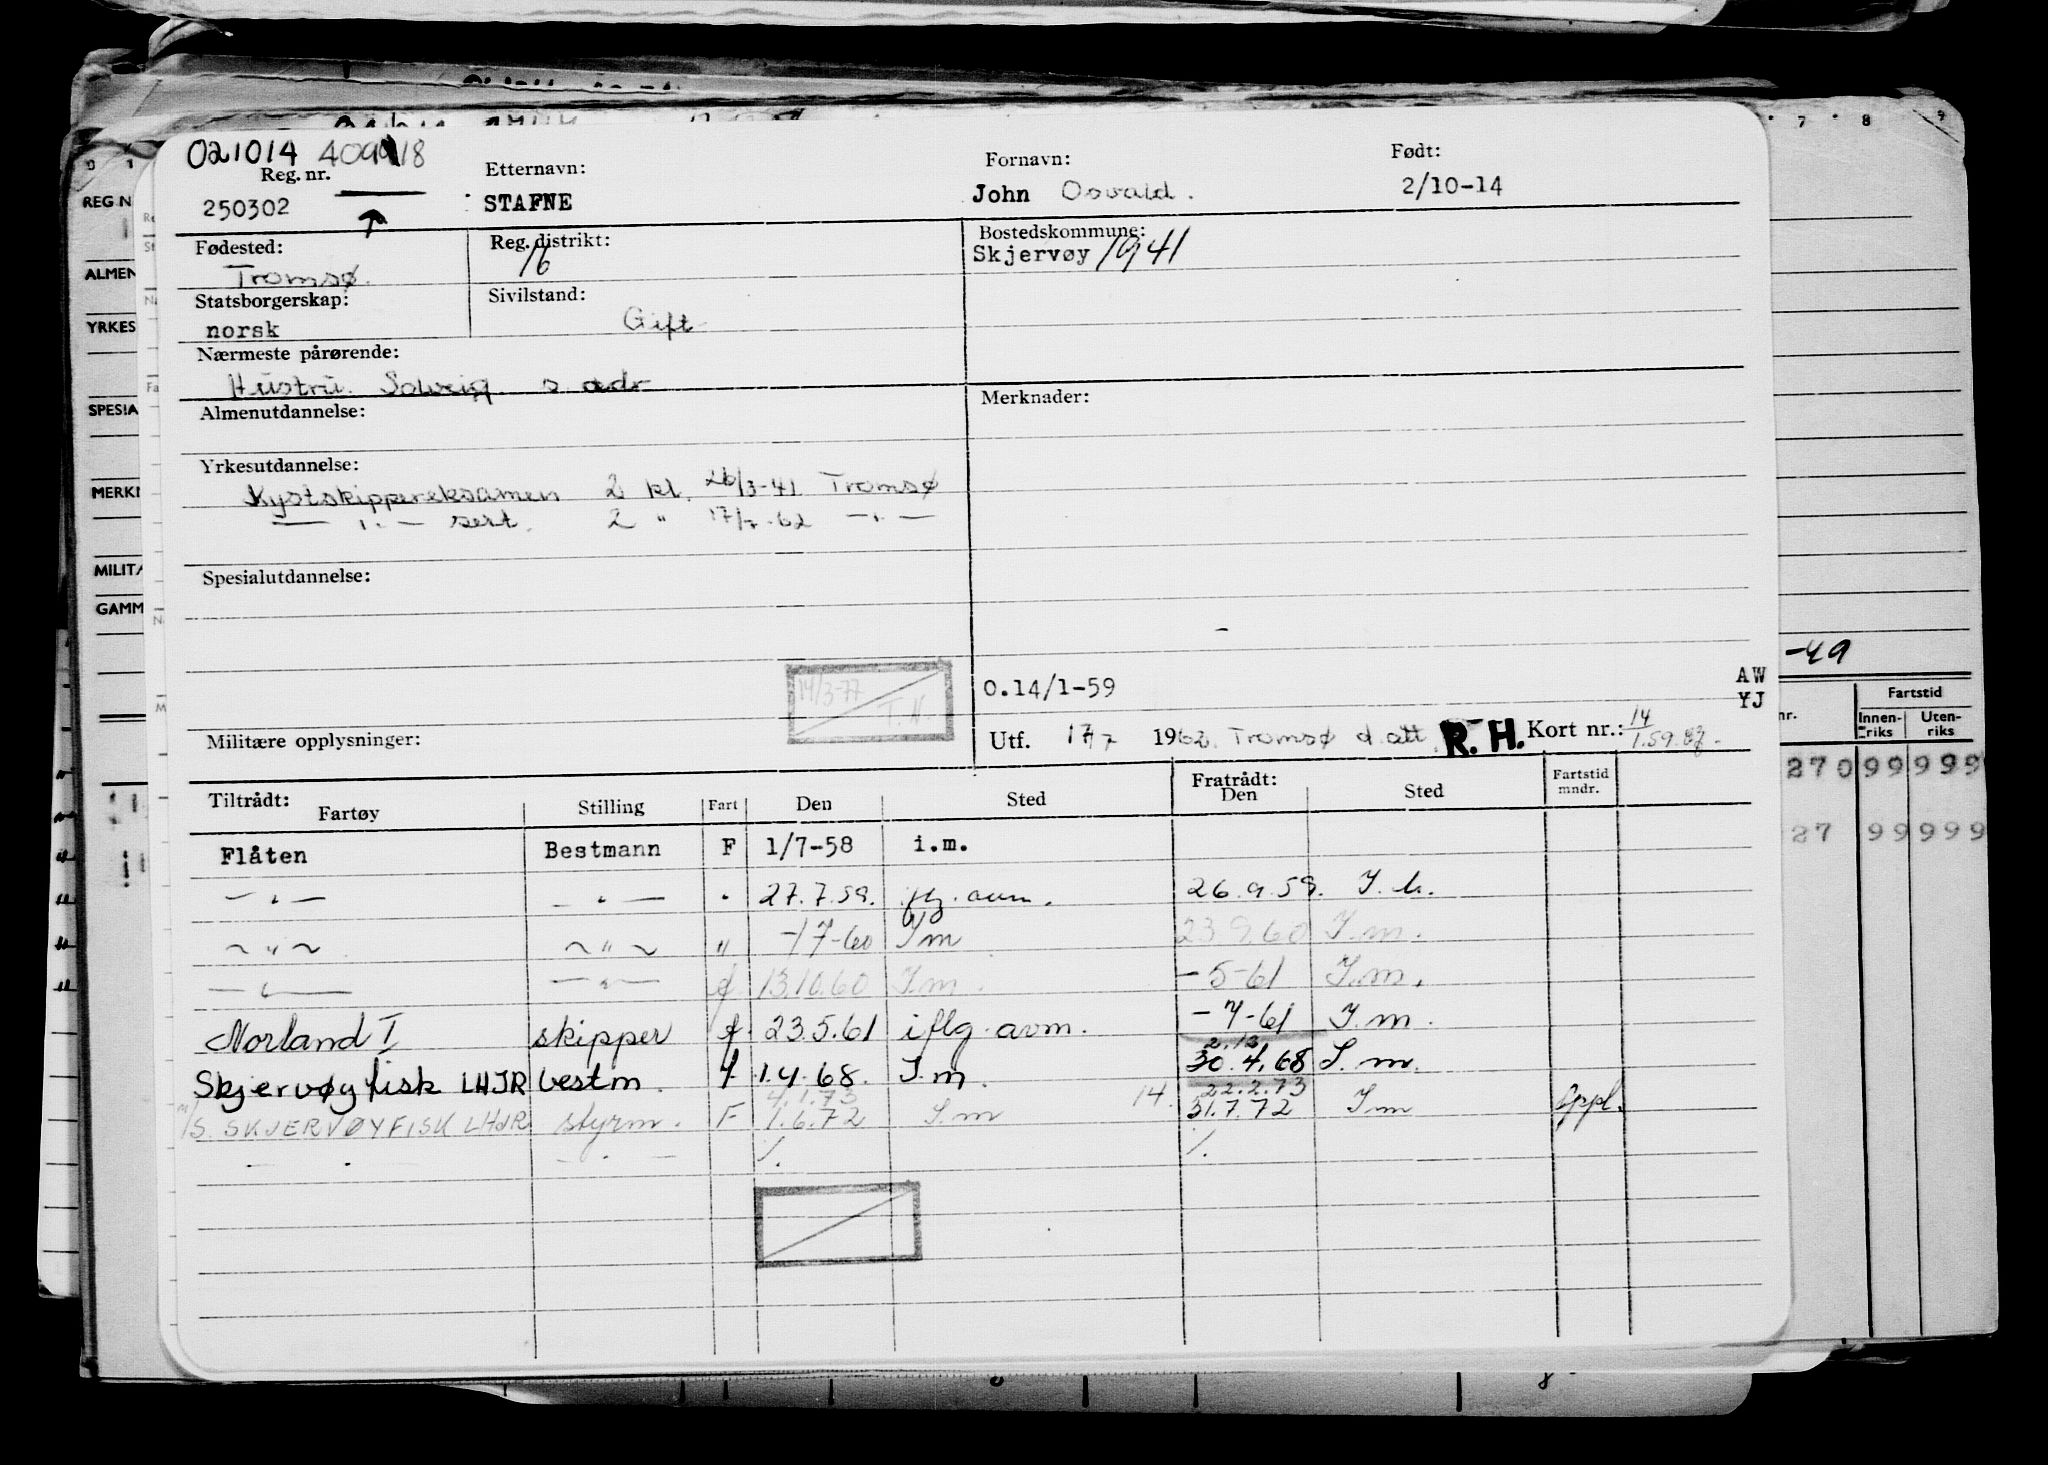 021014 40918
Reg. nr.
250302
Etternavn:
STAFNE
Fornavn:
John Osvald.
Født:
2/10-14
Fødested:
Tromsø.
Reg. distrikt:
16
Bostedskommune:
Skjervøy 1941
Statsborgerskap:
norsk
Sivilstand:
Gift
Nærmeste pårørende:
Hustru Solveig s. adr
Almenutdannelse:
Merknader:
Yrkesutdannelse:
Kystskippereksamen 2 kl. 26/3-41 Tromsø
— " — sert. 2 " 17/7-62 — " —
Spesialutdannelse:
14/3-77
T. N.
O.14/1-59
AW
YJ
Militære opplysninger:
Utf. 17/7 1962. Tromsø d. att. R. H. Kort nr.: 14
Tiltrådt: Fratrådt:
Fartøy Stilling Fart Den Sted Den Sted Fartstid mndr.
Flåten Bestmann F 1/7-58 i.m.
— " — — " — " 27.7.59. iflg. avm. 26.9.59. I.m.
~ " ~ ~ " ~ " -17-60 I m 23.9.60 I.m.
— " — — " — f 13.10.60 I.m. -5-61 I.m.
Norland I skipper f. 23.5.61 iflg. avm. -7-61 I.m.
2.13
Skjervøyfisk LHJR bestm. f 1.4.68. I.m. 30.4.68 I.m.
4.1.73 22.2.73
M/S. SKJERVØYFISK LHJR styrm. F 1.6.72 I.m 14. 31.7.72 I m Oppl.
— " — — " — /. /.
REG N
ALMEN
YRKES
SPESIA
MERKN
MILITA
GAMM
7 8 9
-49
nr.
Fartstid
Innen-
riks
Uten-
riks
270 99 999
27 99 999
8